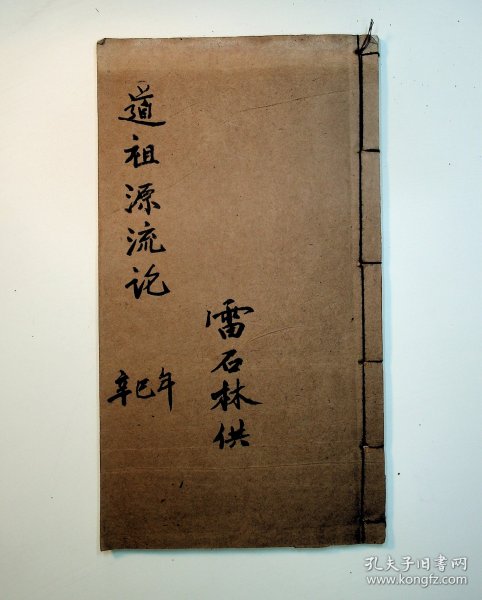 道祖源流论
辛巳年
雷石林供
孔夫子旧书网
www.kongfz.com